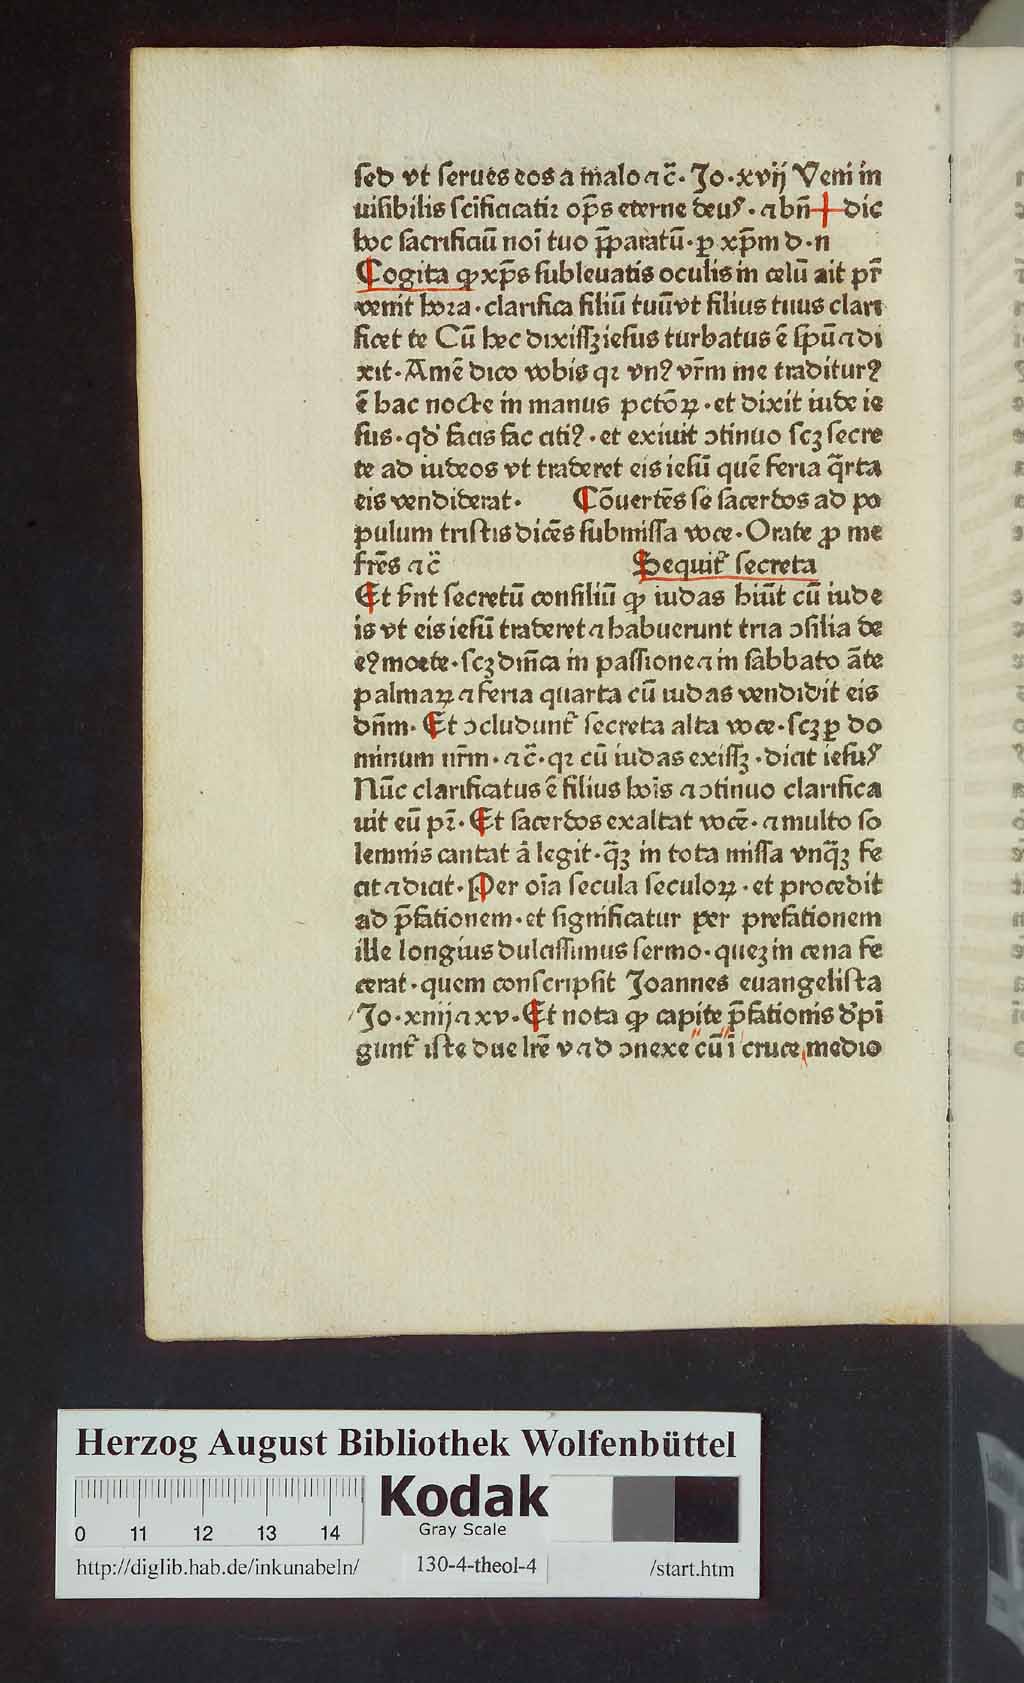 sed vt serues eos a malo ⁊ c̃. Jo. xvij Veni in
uisibilis scificacatiꝛ op̃s eterne deuꝰ. ⁊ bñ ┼ dic
hoc sacrificiū noı̄ tuo p̄paratū. ꝑ xp̄m d. n
Cogita ꝙ xp̄s subleuatis oculis in celū ait pr̄
venit hora. clarifica filiū tuū vt filius tuus clari
ficet te Cū hec dixissꝫ iesus turbatus ē sp̄ū ⁊ di
xit. Amē dico vobis qꝛ vnꝰ vr̄m me traditurꝰ
ē hac nocte in manus pctōꝝ. et dixit iude ie
sus. qd̓ facis fac citiꝰ. et exiuit ↄtinuo scꝫ secre
te ad iudeos vt traderet eis iesū quē feria q̄rta
eis vendiderat. Cōuertēs se sacerdos ad po
pulum tristis dicēs submissa voce. Orate ꝓ me
fr̄es ⁊ c̃
Sequit᷑ secreta
Et h̄nt secretū consiliū ꝙ iudas hiūt cū iude
is vt eis iesū traderet ⁊ habuerunt tria ↄsilia de
eꝰ morte. scꝫ dm̄ca in passione ⁊ in sabbato āte
palmaꝝ ⁊ feria quarta cū iudas vendidit eis
dn̄m. Et ↄcludunt᷑ secreta alta voce. scꝫ ꝑ do
minum nr̄m. ⁊ c̃. qꝛ cū iudas exissꝫ. dicit iesuꝰ
Nūc clarificatus ē filius hoı̄s ⁊ ↄtinuo clarifica
uit eū pꝛ̄. Et sacerdos exaltat vocē. ⁊ multo so
lemnis cantat ā legit. q̄ꝫ in tota missa vnq̄ꝫ fe
cit ⁊ dicit. Per oı̄a secula seculoꝝ. et procedit
ad p̄fationem. et significatur per prefationem
ille longius dulcissimus sermo. queꝫ in cena fe
cerat. quem conscripsit Joannes euangelista
Jo. xiiij ⁊ xv. Et nota ꝙ capite p̄fationis d̓pı̄
gunt᷑ iste due lr̄e v ⁊ d ↄnexe cū ı̄ cruce medio
Herzog August Bibliothek Wolfenbüttel
Kodak
Gray Scale
0 11 12 13 14
http://diglib.hab.de/inkunabeln/ 130-4-theol-4 /start.htm